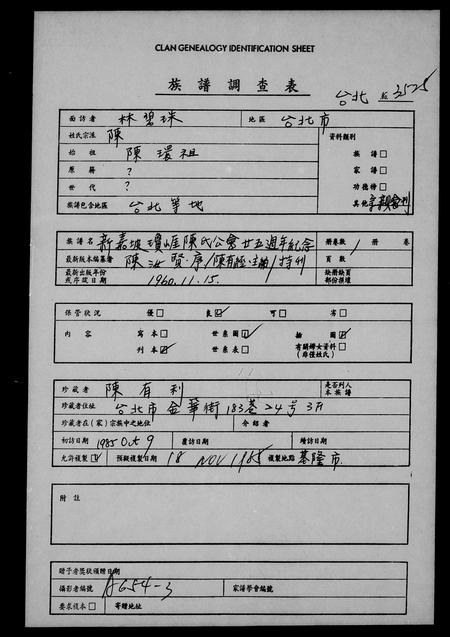 CLAN GENEALOGY IDENTIFICATION SHEET
族譜調查表
台北 3575
面訪者 林碧珠 地區 台北市
姓氏宗派 陳 資料類別
始祖 陳環祖 族譜□
原籍 ? 家譜□
世代 ? 功德榜□
族譜包含地區 台北等地 其他
族譜名 新嘉坡瓊崖陳氏公會廿五週年紀念 冊卷數 1 冊 卷
最新版本編纂者 特刊 頁數
最新出版年份或序跋日期 1960.11.15. 缺冊缺頁部份損壞
保管狀況 優□ 良☑ 可□ 劣□
內容 寫本□ 世系圖☑ 插圖☑
刊本☑ 世系表□ 有關婦女資料□(非僅姓氏)
珍藏者 陳有利 是否列入本族譜
珍藏者住址 台北市金華街183巷24号3F
珍藏者在(家)宗族中之地位 介紹者
初訪日期 1985 Oct 9 覆訪日期 續訪日期
允許複製☑ 預擬複製日期 18 NOV 1985 複製地點 基隆市.
附註
贈予者獎狀頒贈日期
攝影者編號 A654-3 家譜學會編號
要求複本□ 寄贈地址